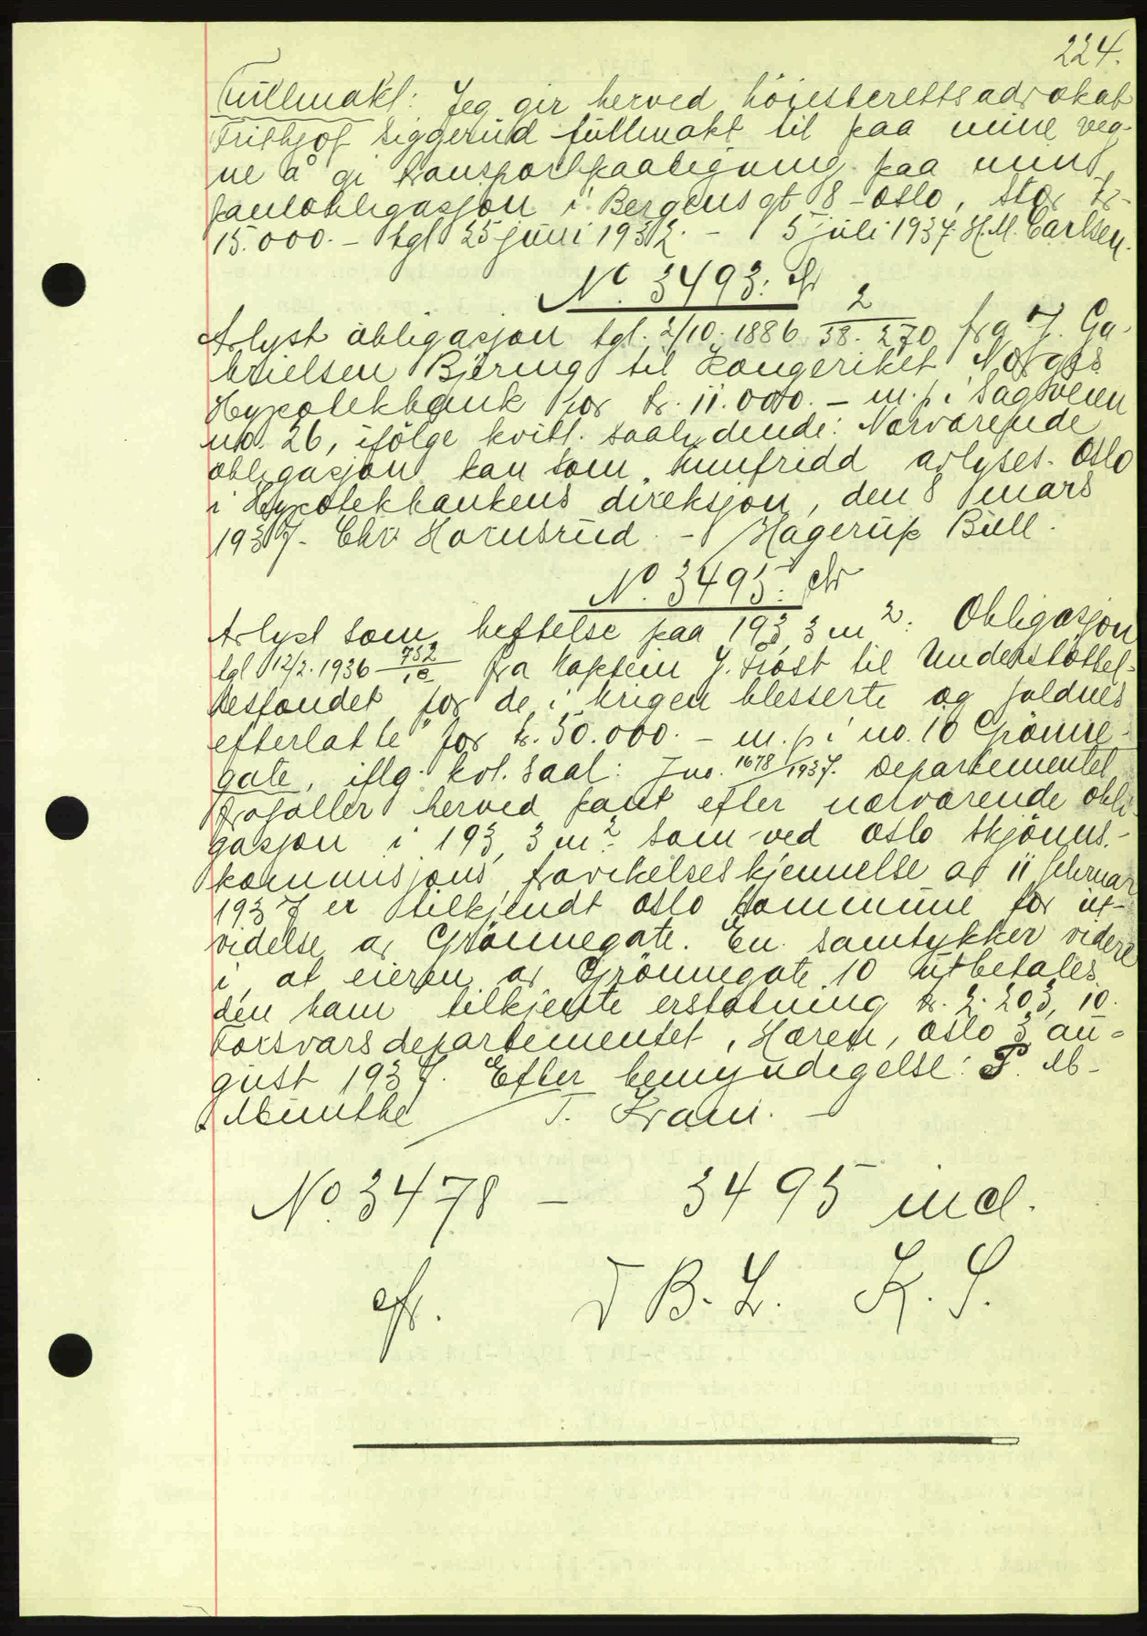 224.
Fullmakt: Jeg gir herved höiesterettsadvokat
Frithjof Siggerud fullmakt til paa mine veg-
ne å gi transportpaategning paa min
pantobligasjon i Bergens gt 8 - Oslo, stor kr.
15.000.- tgl 25 juni 1932. - 5 juli 1937. H.M. Carlsen.
No. 3493:
Avlyst obligasjon tgl. 2/10. 1886 2/38.270 fra J. Ga-
brielsen Bjering til Kongeriket Norges
Hypotekbank for kr. 11.000.- m.p. i Sagveien
no. 26, ifölge kvitt. saalydende: Nærværende
obligasjon kan som innfridd avlyses. Oslo
i Hypotekbankens direksjon, den 8 mars
1937. Chr Hornsrud - Hagerup Bull.
No. 3495:
Avlyst som heftelse paa 193,3 m2: Obligasjon
tgl 12/2.1936 fra Kaptein J. Frost til "Understöttel-
sesfondet for de i krigen blesserte og faldnes
efterlatte" for kr. 50.000.- m.p. i no. 10 Grönne-
gate, iflg. kvt. saal: Jno. 1678/1937. Departementet
frafaller herved pant efter nærværende obli-
gasjon i 193,3 m2 som ved Oslo Skjönns-
kommisjons fravikelseskjennelse av 11 februar
1937 er tilkjendt Oslo kommune for ut-
videlse av Grönnegate. En samtykker videre
i at eieren av Grönnegate 10 utbetales
den ham tilkjente erstatning kr. 2.203,10.
Forsvarsdepartementet, Hæren, Oslo 3 au-
gust 1937. Efter bemyndigelse: P. M.
Munthe T. Fram.
No 3478 - 3495 incl.
cfr. D B. L. K. S.